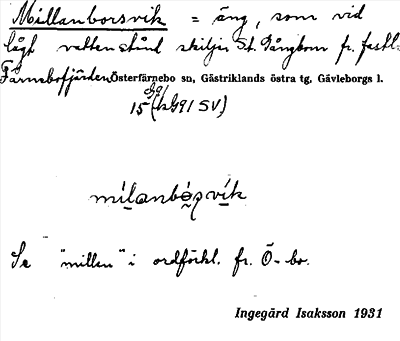 Millanborsvik = äng, som vid
lågt vattenstånd skiljer St. Gångbon fr. fastl.
Färnebofjärden Österfärnebo sn, Gästriklands östra tg, Gävleborgs l.
15
milanbo̱svik
Se "millan" i ordförkl. fr. Ö-bo.
Ingegärd Isaksson 1931